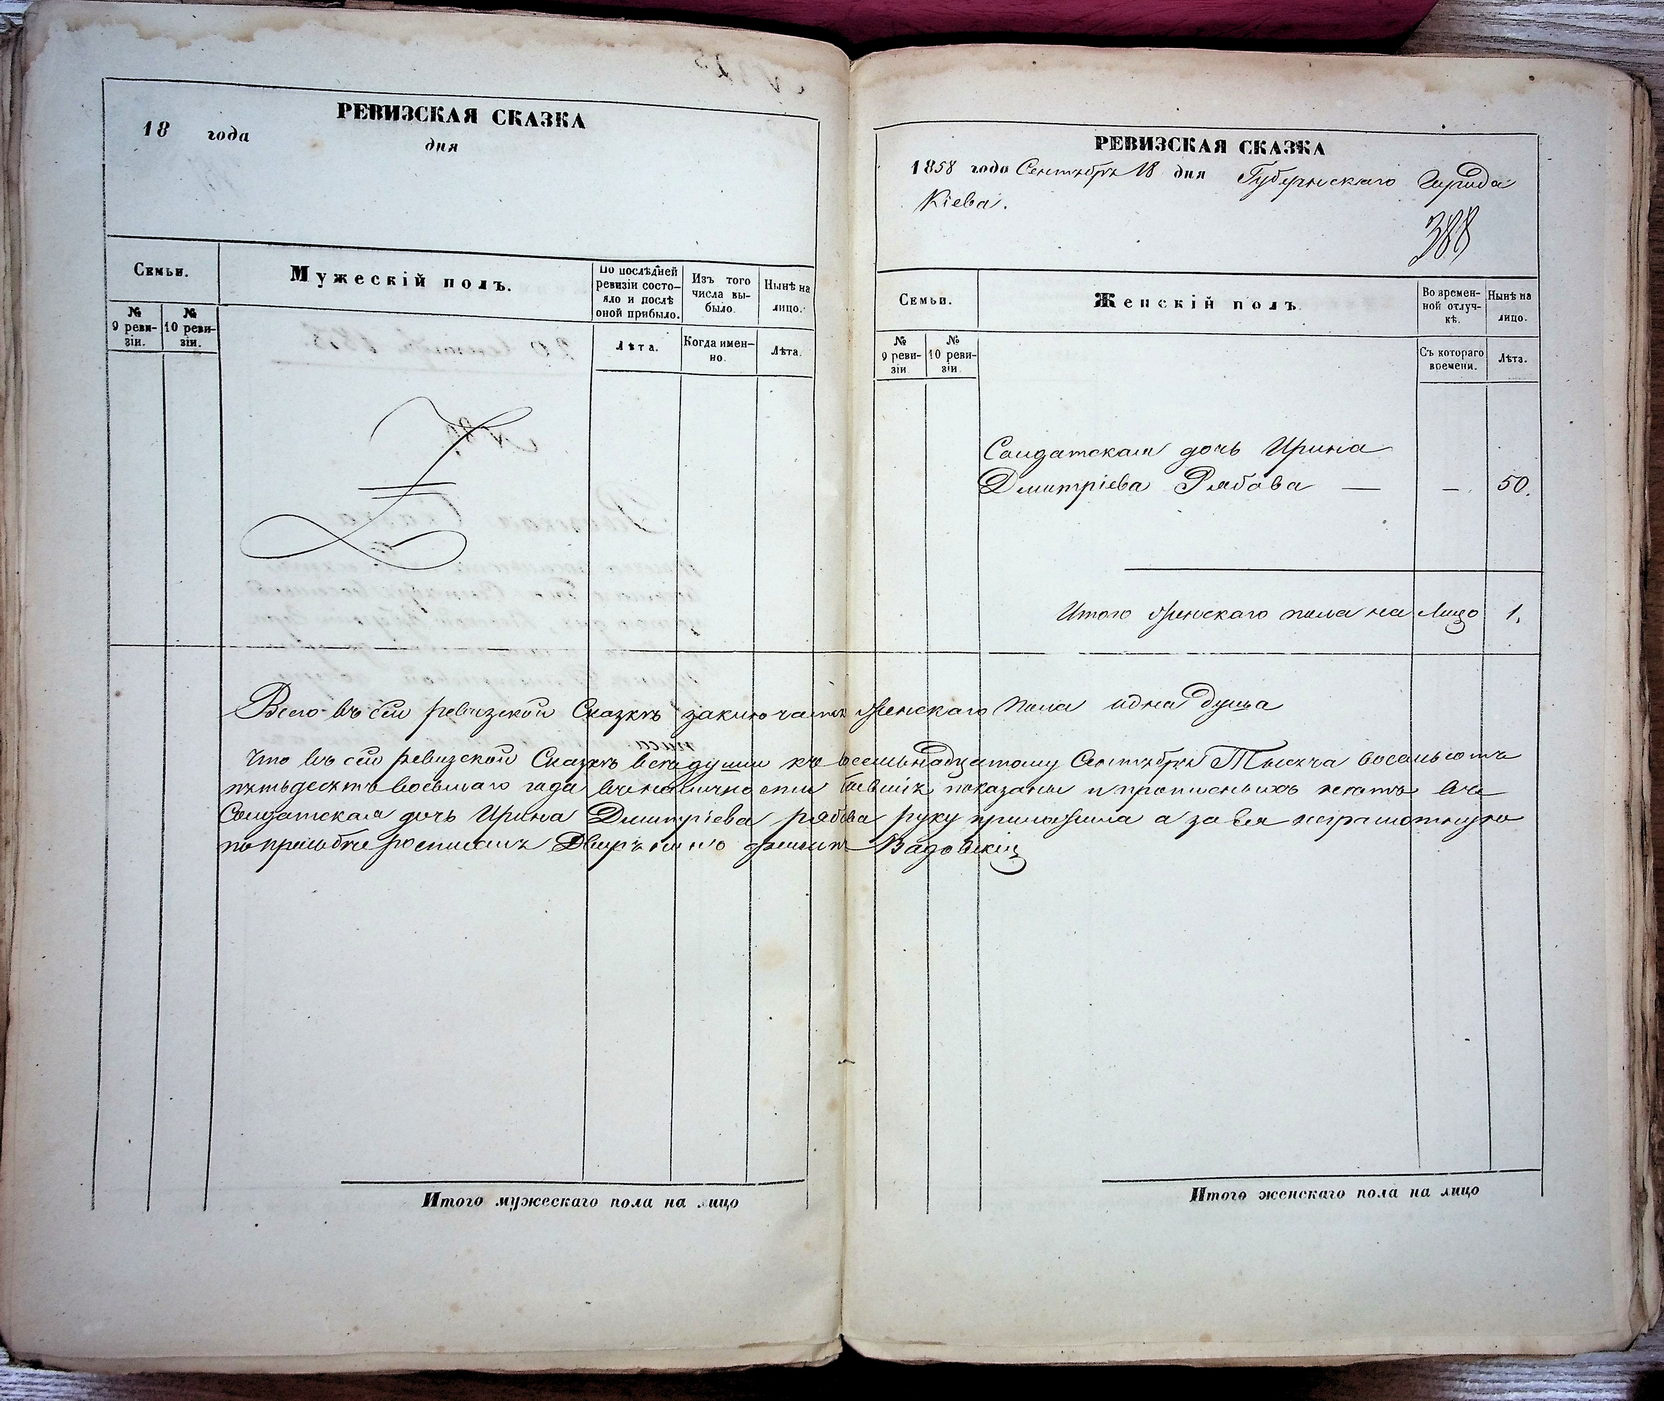 РЕВИЗСКАЯ СКАЗКА
18 года дня
Семьи.
Мужескій полъ.
По послѣдней ревизіи состояло и послѣ оной прибыло.
Изъ того числа выбыло.
Нынѣ на лицо.
№ 9 ревизіи.
№ 10 ревизіи.
Лѣта.
Когда именно.
Лѣта.
Итого мужескаго пола на лицо
РЕВИЗСКАЯ СКАЗКА
1858 года Сентября 18 дня Губернскаго Города
Кіева.
388
Семьи.
Женскій полъ
Во временной отлучкѣ.
Нынѣ на лицо.
№ 9 ревизіи
№ 10 ревизіи
Съ котораго времени.
Лѣта.
Солдатская дочь Ирина
Дмитріева Рябова — —. 50.
Итого женскаго пола на Лицо 1.
Всего въ сей ревизской Сказкѣ заключается женскаго пола одна душа
Что въ сей ревизской Сказкѣ все души къ восемьнадцатому Сентября Тысяча восемьсотъ
пятьдесятъ восьмаго года показаны и прописныхъ нетъ въ
Солдатская дочь Ирина Дмитріева рябова руку приложила а за нея неграмотную
по прозьбе росписался Дворянинъ
Итого женскаго пола на лицо